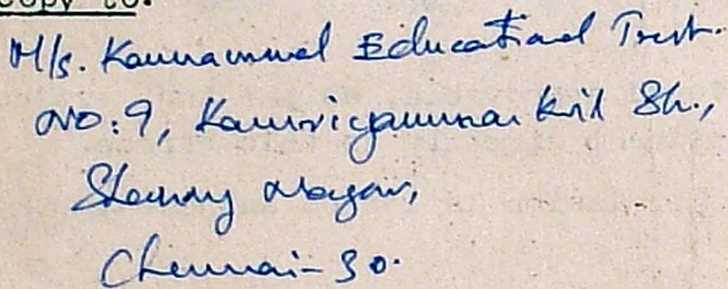 copy to:
M/s. Kannammal Educational Trust.
No: 9, Kanniyamman Koil St.,
Shenoy Nagar,
Chennai-30.